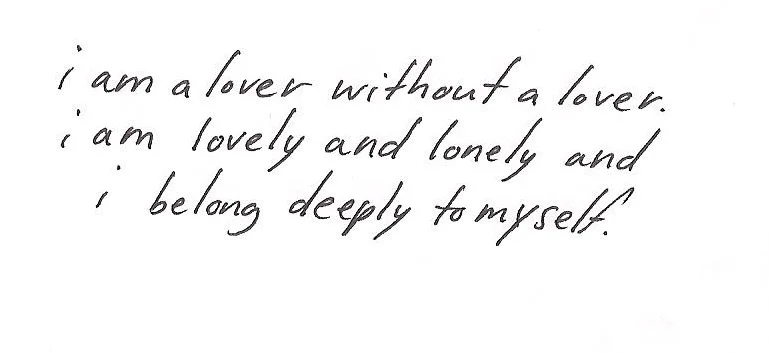 i am a lover without a lover.
i am lovely and lonely and
i belong deeply to myself.